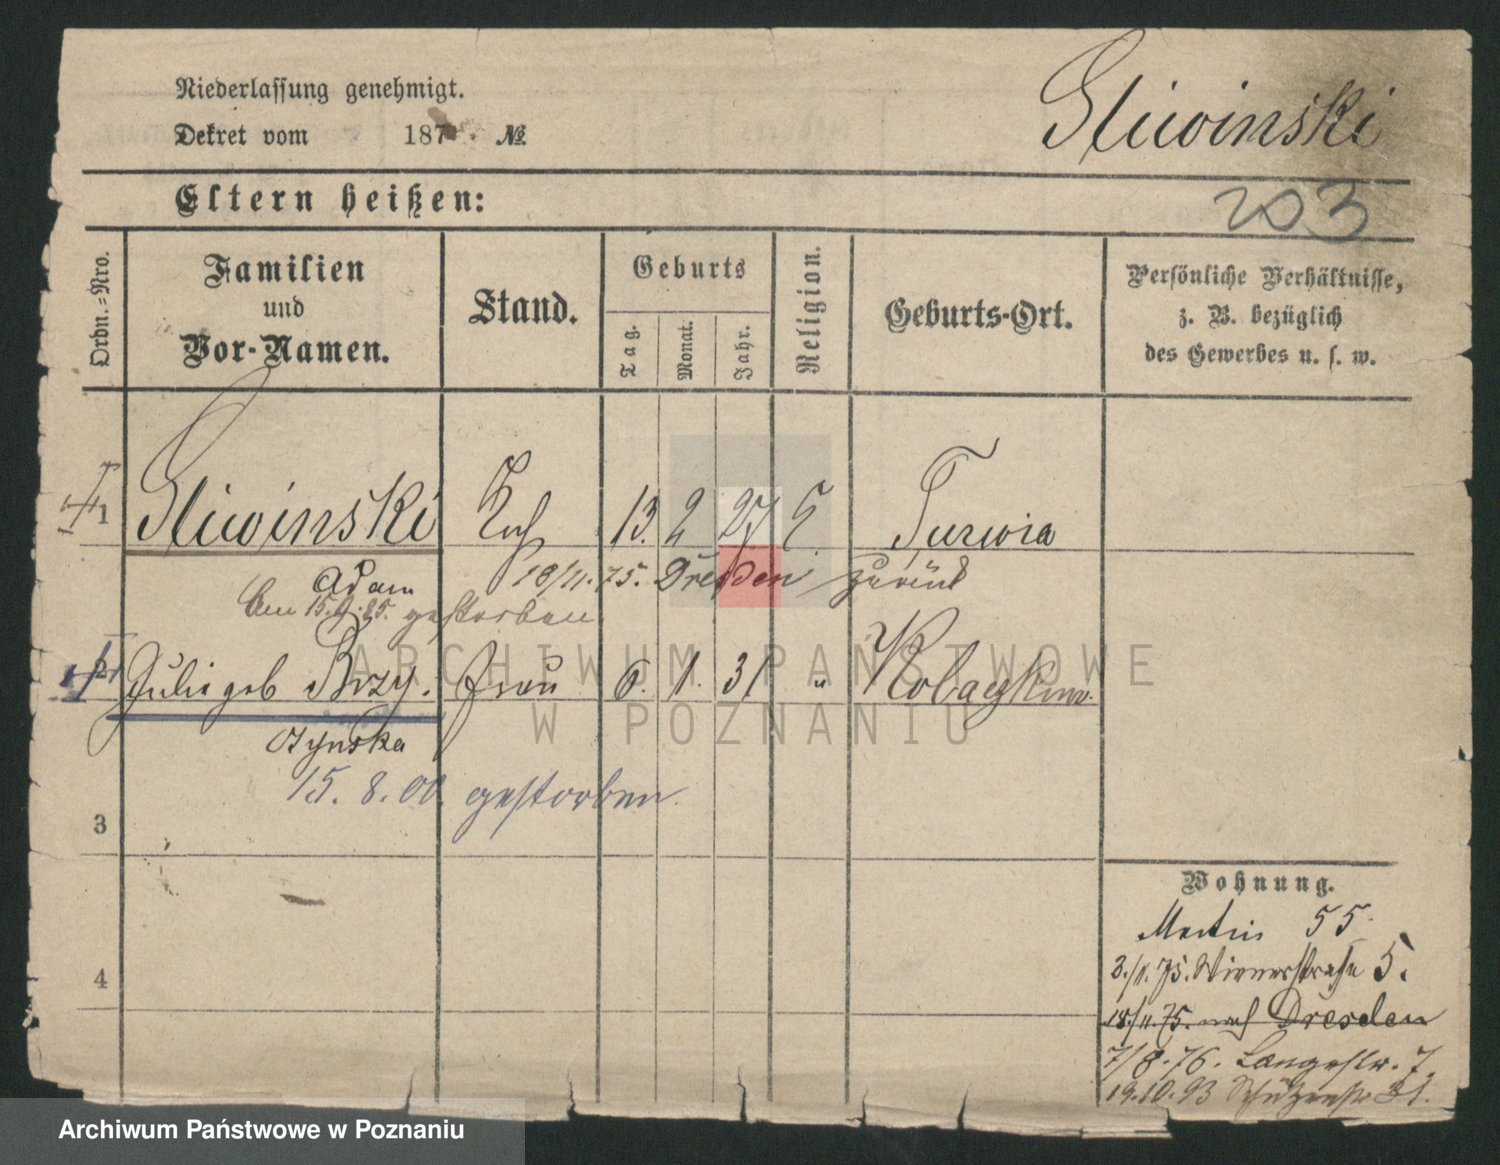 Niederlassung genehmigt.
Dekret vom 187 . №
Sliwinski
Eltern heißen:
203
Ordn.-Nro.
Familien
und
Vor-Namen.
Stand.
Geburts
Tag.
Monat.
Jahr.
Religion.
Geburts-Ort.
Persönliche Verhältnisse,
z. B. bezüglich
des Gewerbes u. s. w.
1 Sliwinski Koch 13. 2 27 Turwia
Adam 18/11. 75. Dresden zurück
Am 15. 9. 85. gestorben
2 Julie geb Brzy. Frau 6. 1. 31 "
zynska
15. 8. 00. gestorben.
3
4
Wohnung.
Martin 55
3./11. 75. 5.
18/11. 75. nach Dresden
7/8. 76. Langestr. 7.
19.10.93 Schützenstr 31.
ARCHIWUM PAŃSTWOWE
W POZNANIU
Archiwum Państwowe w Poznaniu